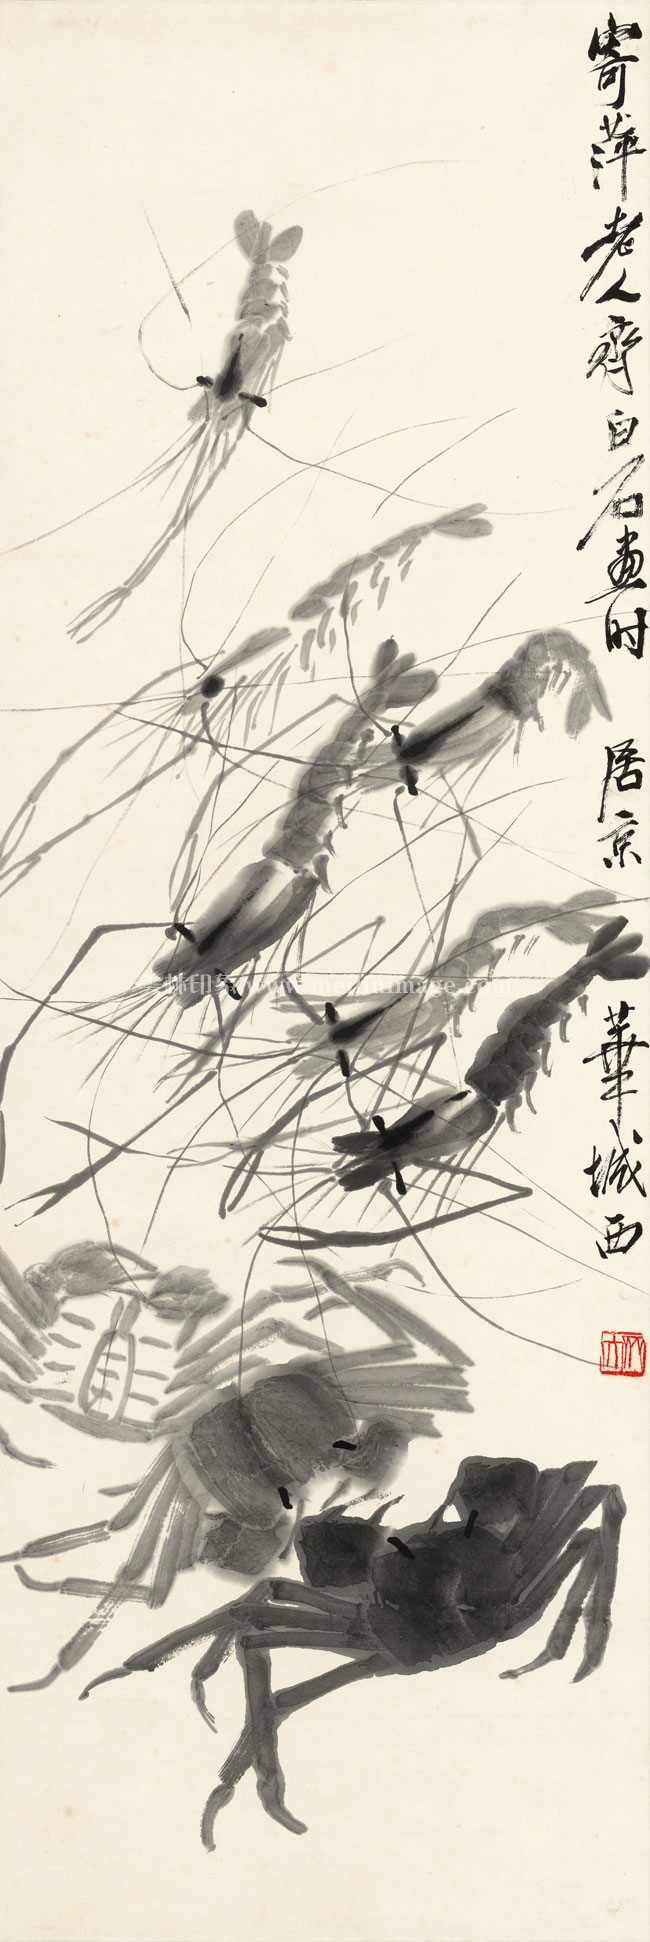 寄萍老人齊白石畫时居京華城西
美林印象 www.meilinimage.com